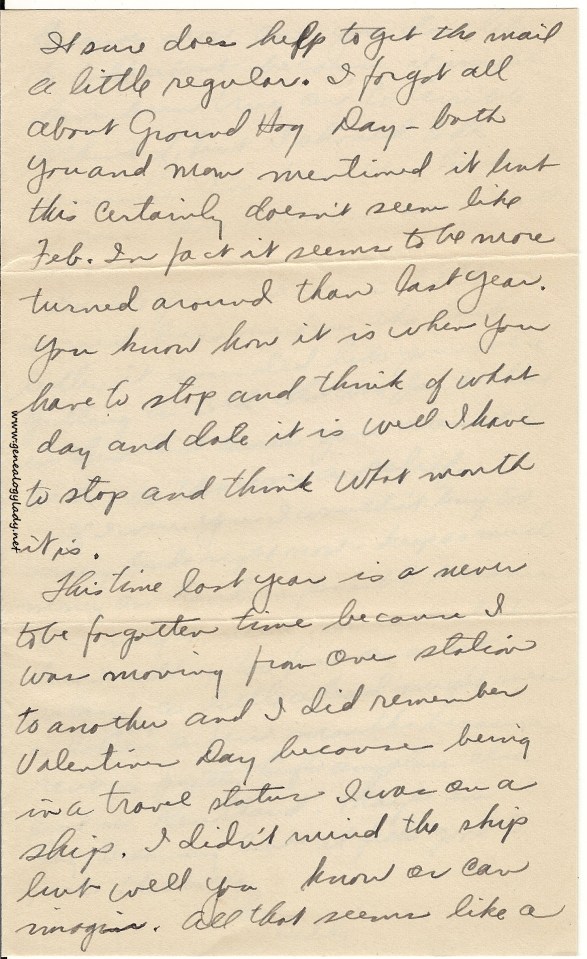 It sure does help to get the mail
a little regular. I forgot all
about Ground Hog Day - both
you and mom mentioned it but
this certainly doesn't seem like
Feb. In fact it seems to be more
turned around than last year.
You know how it is when you
have to stop and think of what
day and date it is well I have
to stop and think what month
it is.
This time last year is a never
to be forgotten time because I
was moving from one station
to another and I did remember
Valentines Day because being
in a travel status I was on a
ship. I didn't mind the ship
but well you know or can
imagine. All that seems like a
www.genealogylady.net